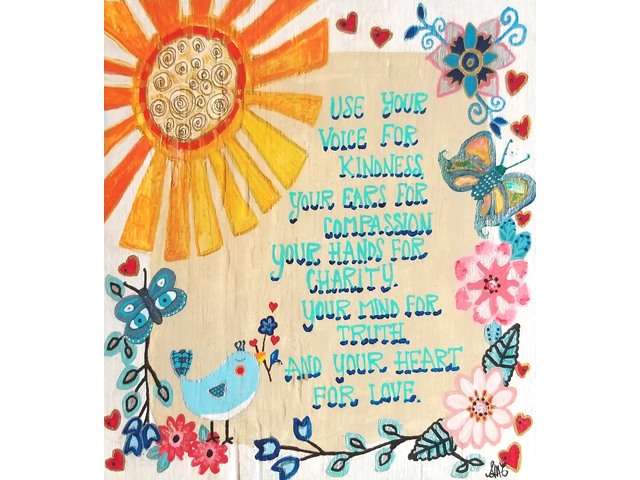 USE YOUR
VOICE FOR
KINDNESS,
YOUR EARS FOR
COMPASSION
YOUR HANDS FOR
CHARITY.
YOUR MIND FOR
TRUTH.
AND YOUR HEART
FOR LOVE.